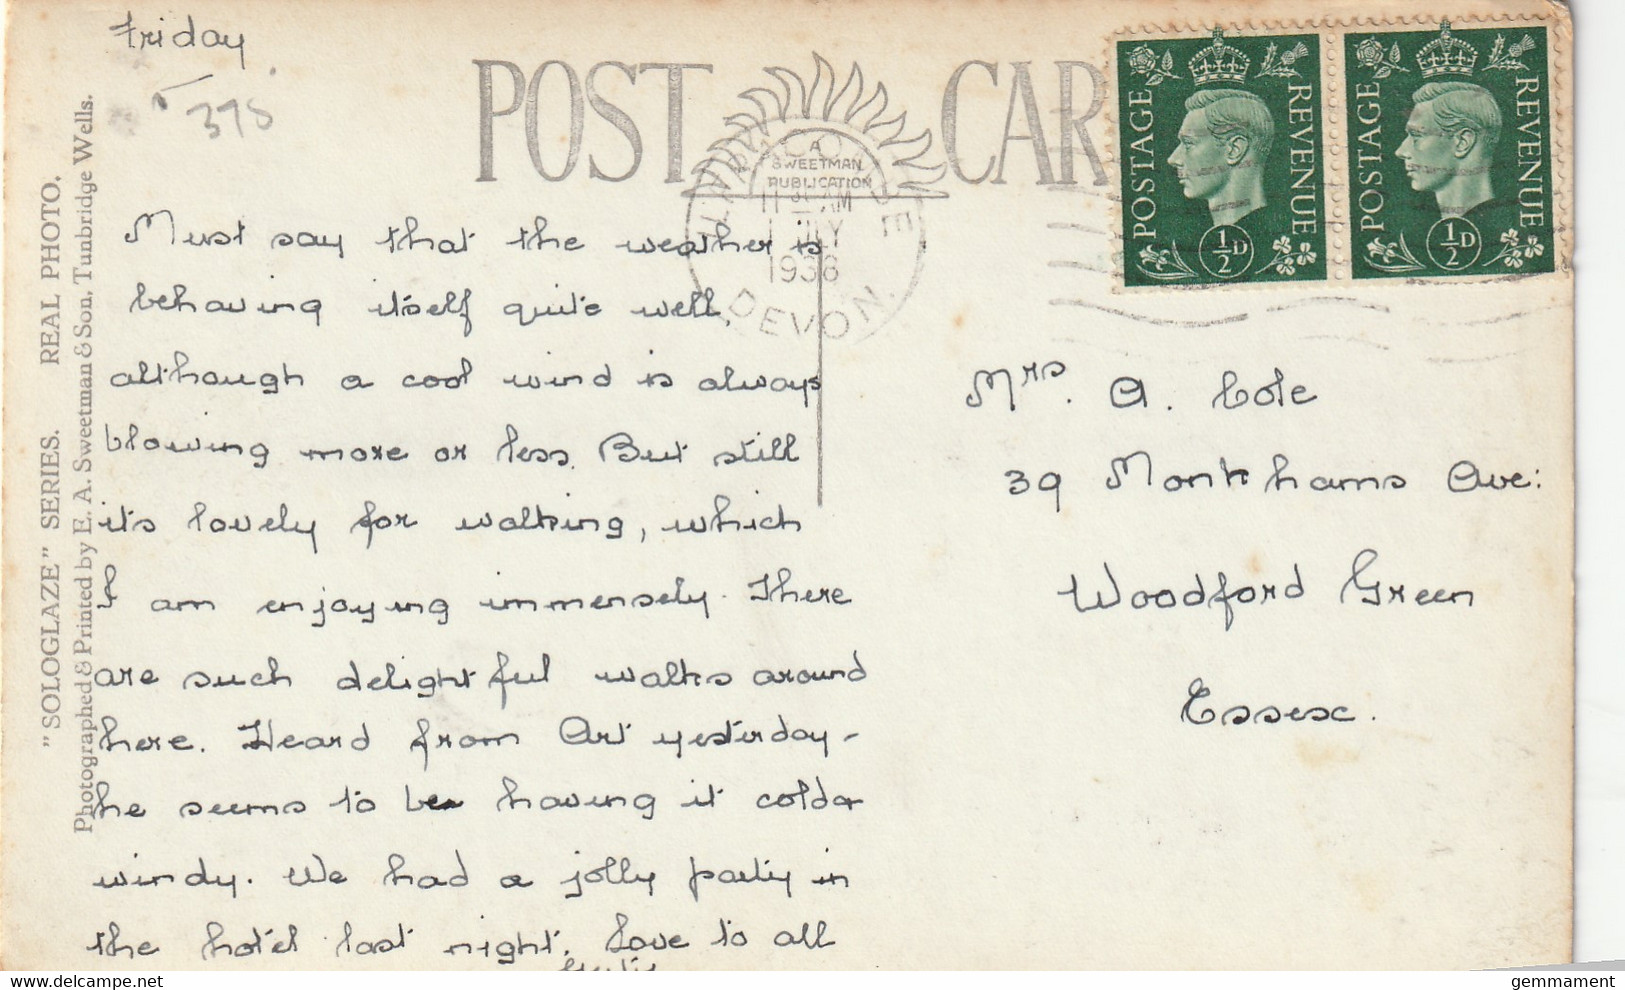 Friday
375
"SOLOGLAZE" SERIES. REAL PHOTO.
Photographed & Printed by E. A. Sweetman & Son, Tunbridge Wells.
POST CAR
A
SWEETMAN
PUBLICATION
11 AM
JLY
1938
DEVON.
POSTAGE REVENUE
½D
POSTAGE REVENUE
½D
Must say that the weather is
behaving itself quite well,
although a cool wind is always
blowing more or less. But still
its lovely for walking, which
I am enjoying immensely. There
are such delightful walks around
here. Heard from Art yesterday -
he seems to be having it cold &
windy. We had a jolly party in
the hotel last night. Love to all
Mrs. A. Cole
39 Monkhams Ave:
Woodford Green
Essex.
https://www.delcampe.net
gemmament